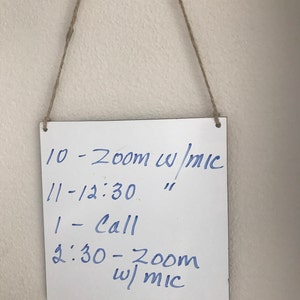 10 - Zoom w/mic
11-12:30 "
1 - Call
2:30 - Zoom
w/ mic